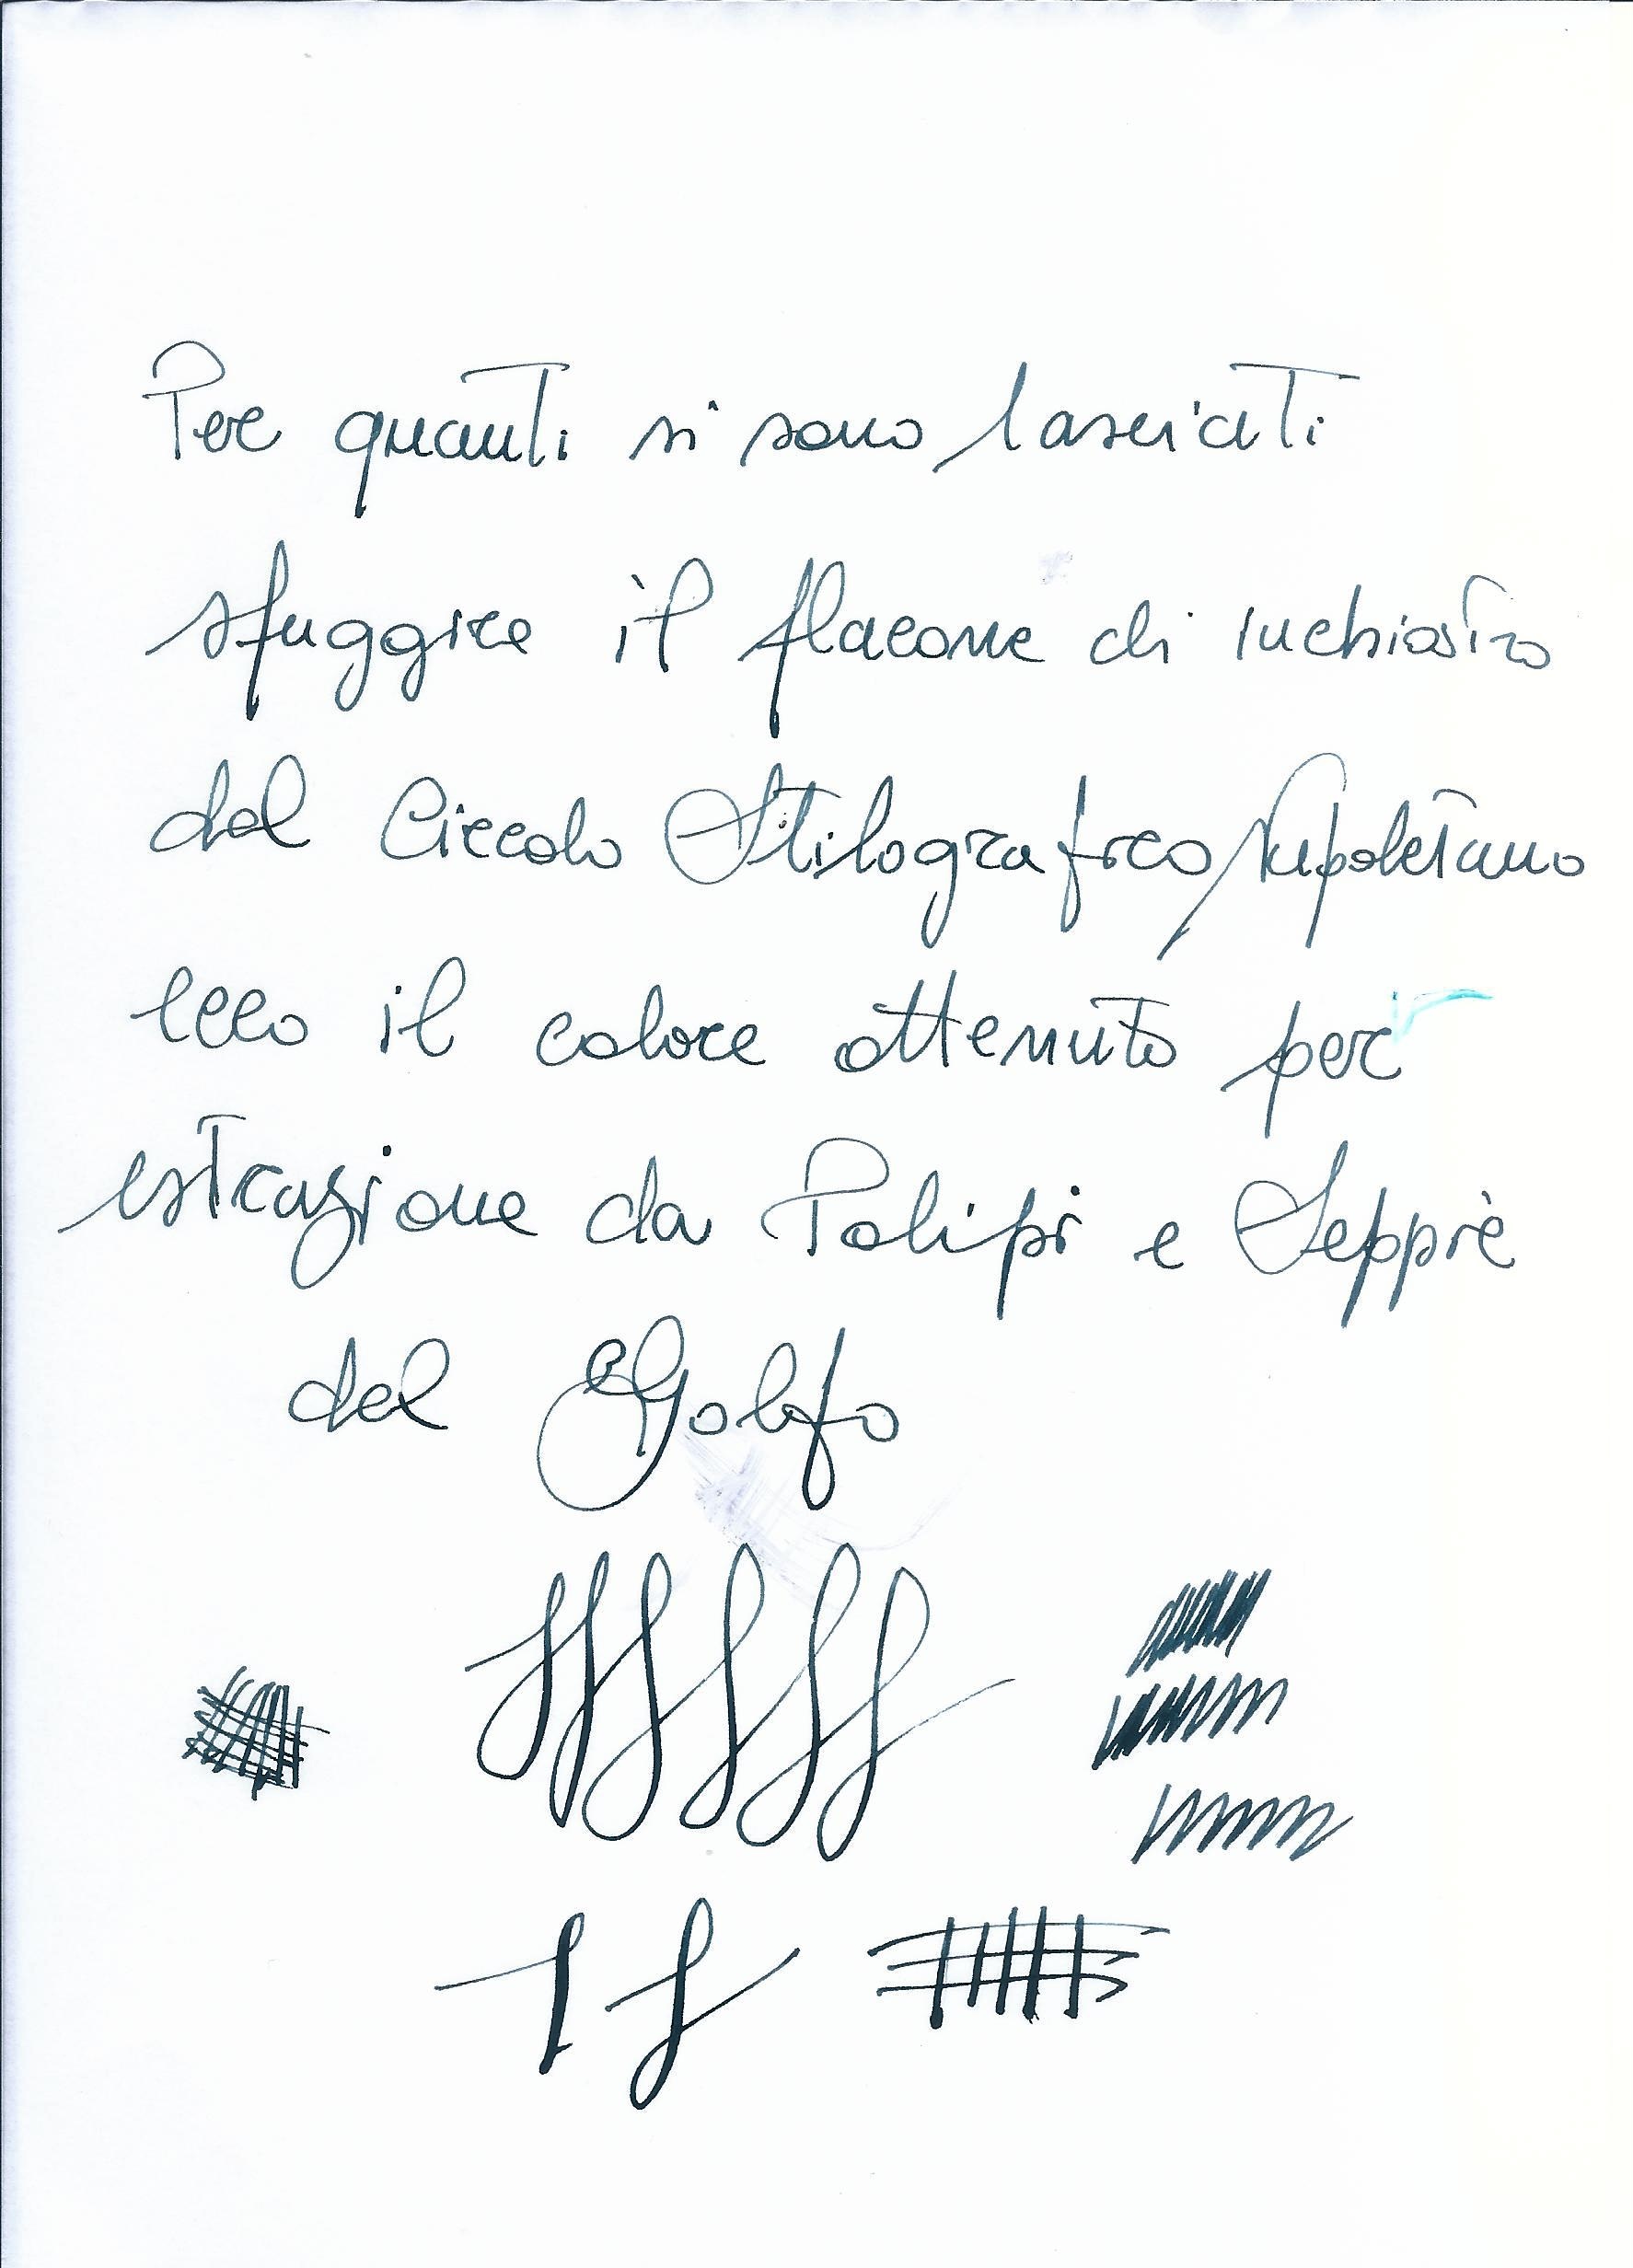 Per quanti si sono lasciati
sfuggire il flacone di inchiostro
del Circolo Stilografico Napoletano
ecco il colore ottenuto per
estrazione da Polipi e Seppie
del Golfo